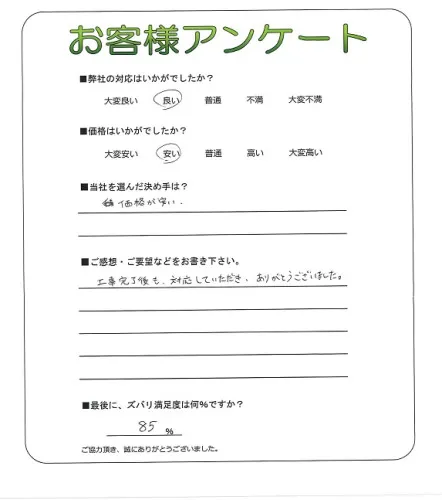 お客様アンケート
■弊社の対応はいかがでしたか?
大変良い 良い 普通 不満 大変不満
■価格はいかがでしたか?
大変安い 安い 普通 高い 大変高い
■当社を選んだ決め手は?
価格が安い.
■ご感想・ご要望などをお書き下さい。
工事完了後も、対応していただき、ありがとうございました。
■最後に、ズバリ満足度は何%ですか?
85 %
ご協力頂き、誠にありがとうございました。